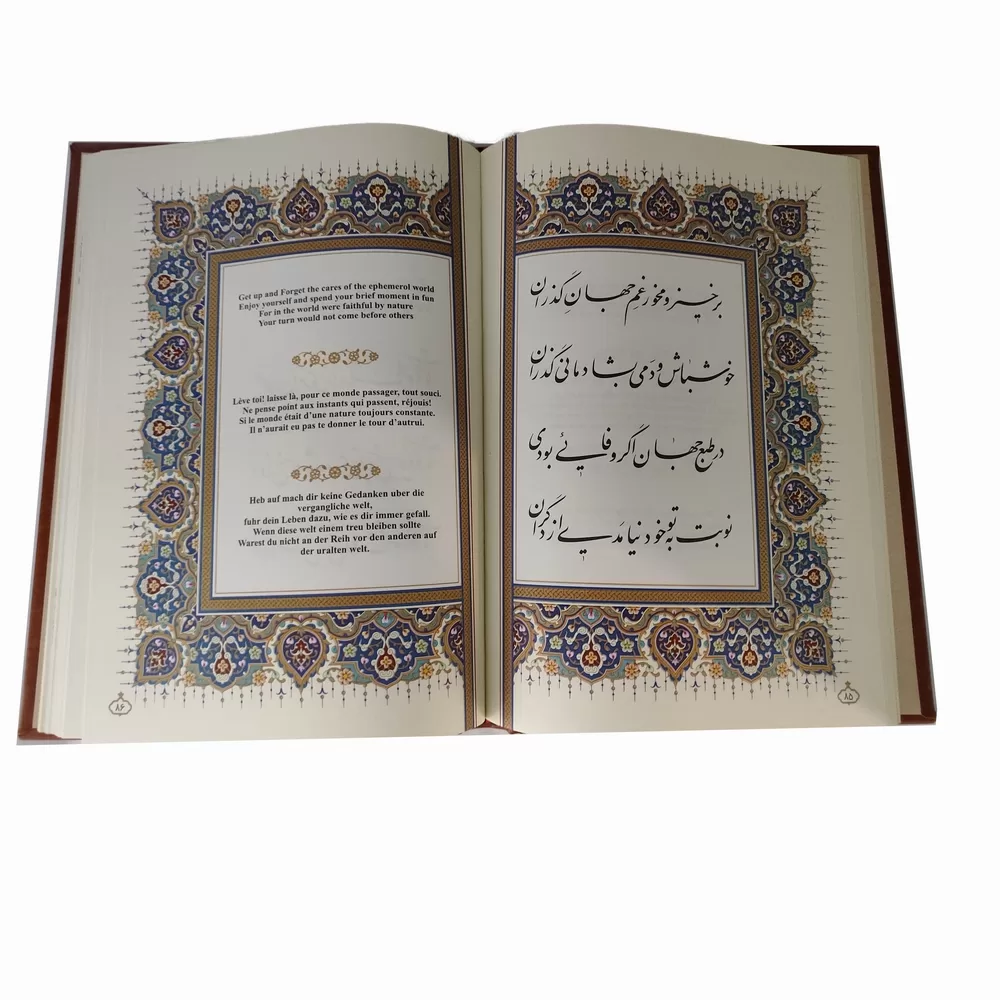 برخیز و مخور غم جهانِ گذران
خوش باش و دمی به شادمانی گذران
در طبع جهان اگر وفائی بودی
نوبت به تو خود نیامدی از دگران
۸۵
Get up and Forget the cares of the ephemerol world
Enjoy yourself and spend your brief moment in fun
For in the world were faithful by nature
Your turn would not come before others
Lève toi! laisse là, pour ce monde passager, tout souci.
Ne pense point aux instants qui passent, réjouis!
Si le monde était d'une nature toujours constante.
Il n'aurait eu pas te donner le tour d'autrui.
Heb auf mach dir keine Gedanken uber die
vergangliche welt,
fuhr dein Leben dazu, wie es dir immer gefall.
Wenn diese welt einem treu bleiben sollte
Warest du nicht an der Reih vor den anderen auf
der uralten welt.
۸۶